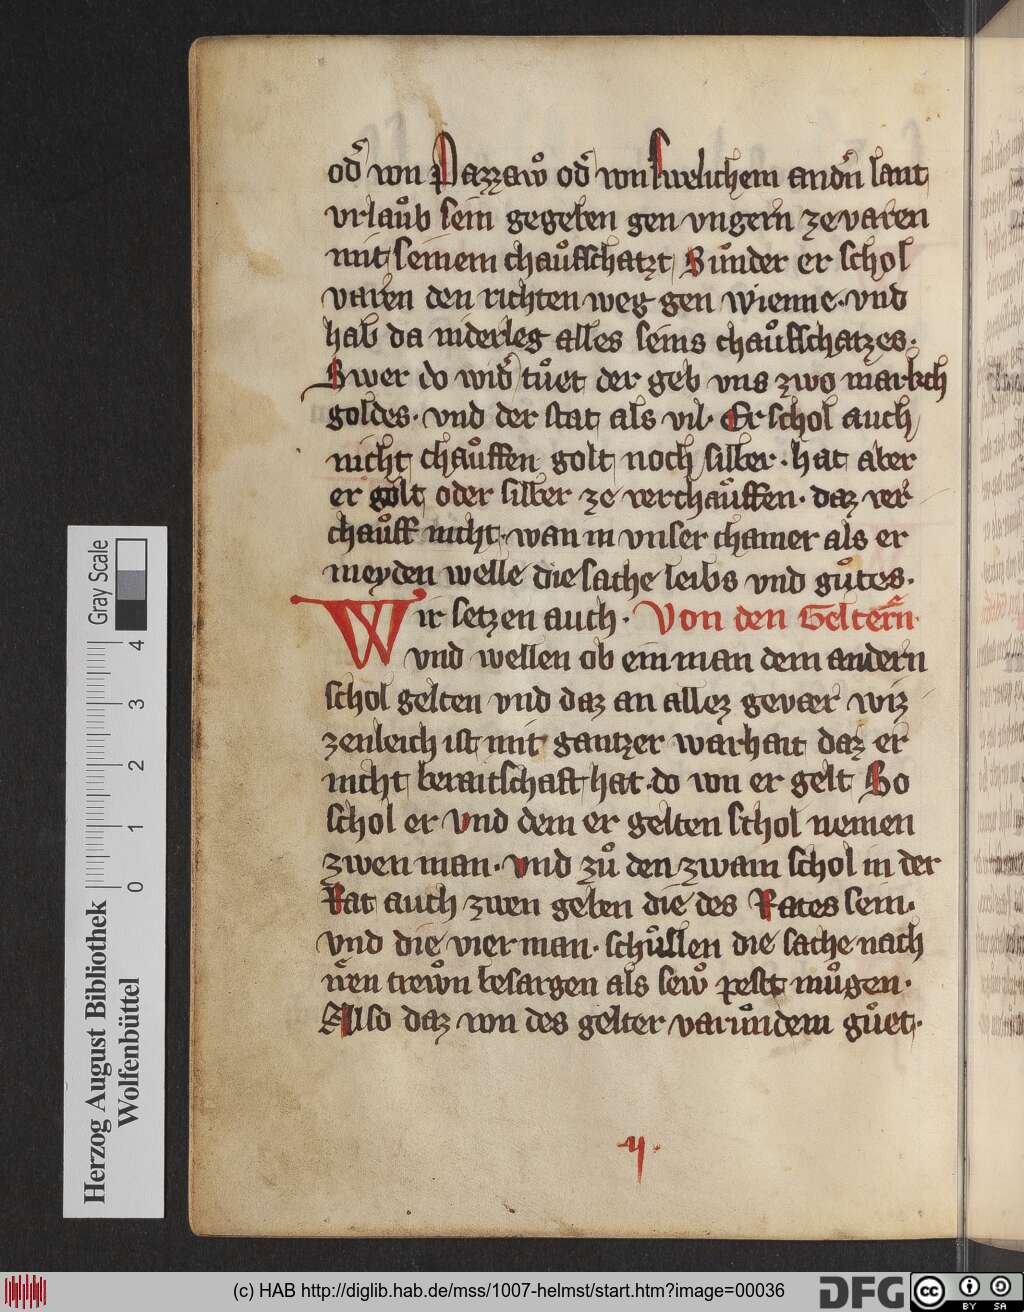 od͛ von Pazzawͦ od͛ von swelichem andn͛ lant
vrlauͦb sein gegeben gen vngern ze varen
mit seinem chauͦfschatzt Suͦnder er schol
varen den richten weg gen wienne· vnd
hab da niderleg alles seins chauͦfschatzes·
Swer do wid͛ tuͦet der geb vns zwo markch
goldes· vnd der stat als vil· Er schol auch
nicht chauͦffen golt noch silber· hat aber
er golt oder silber ze verchauͦffen· daz ver
chauͦff nicht· wan in vnser chamer als er
meyden welle die sache leibs vnd guͦtes·
Wir setzen auch· Von den Geltern͛
vnd wellen ob ein man dem andern
schol gelten vnd daz an allez gevaer wiz
zenleich ist mit gantzer warhait daz er
nicht beraitschaft hat· do von er gelt So
schol er vnd dem er gelten schol nemen
zwen man· vnd zuͦ den zwain schol in der
Rat auch zwen geben die des Rates sein·
vnd die vier man· schuͦllen die sache nach
irn͛ trewͦn besargen als sewͦ pest muͦgen·
Also daz von des gelter varuͦndem guͦet·
4·
Herzog August Bibliothek
Wolfenbüttel
Gray Scale
0 1 2 3 4
(c) HAB http://diglib.hab.de/mss/1007-helmst/start.htm?image=00036
DFG
cc BY SA